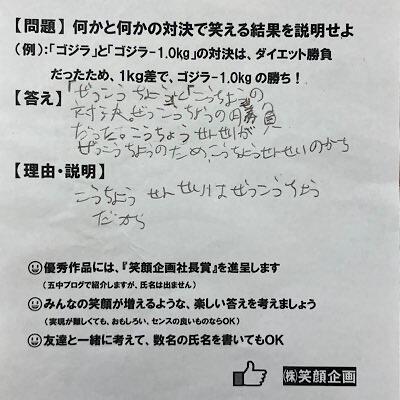 【問題】何かと何かの対決で笑える結果を説明せよ
(例):「ゴジラ」と「ゴジラ-1.0kg」の対決は、ダイエット勝負
だったため、1kg差で、ゴジラ-1.0kgの勝ち!
【答え】「ぜっこうちょう」と「こうちょう」の
対決ぜっこうちょうの勝負
だった。こうちょうせんせいが
ぜっこうちょうのため、こうちょうせんせいのかち
【理由・説明】
こうちょうせんせいはぜっこうちょう
だから
優秀作品には、『笑顔企画社長賞』を進呈します
(五中ブログで紹介しますが、氏名は出ません)
みんなの笑顔が増えるような、楽しい答えを考えましょう
(実現が難しくても、おもしろい、センスの良いものならOK)
友達と一緒に考えて、数名の氏名を書いてもOK
㈱笑顔企画